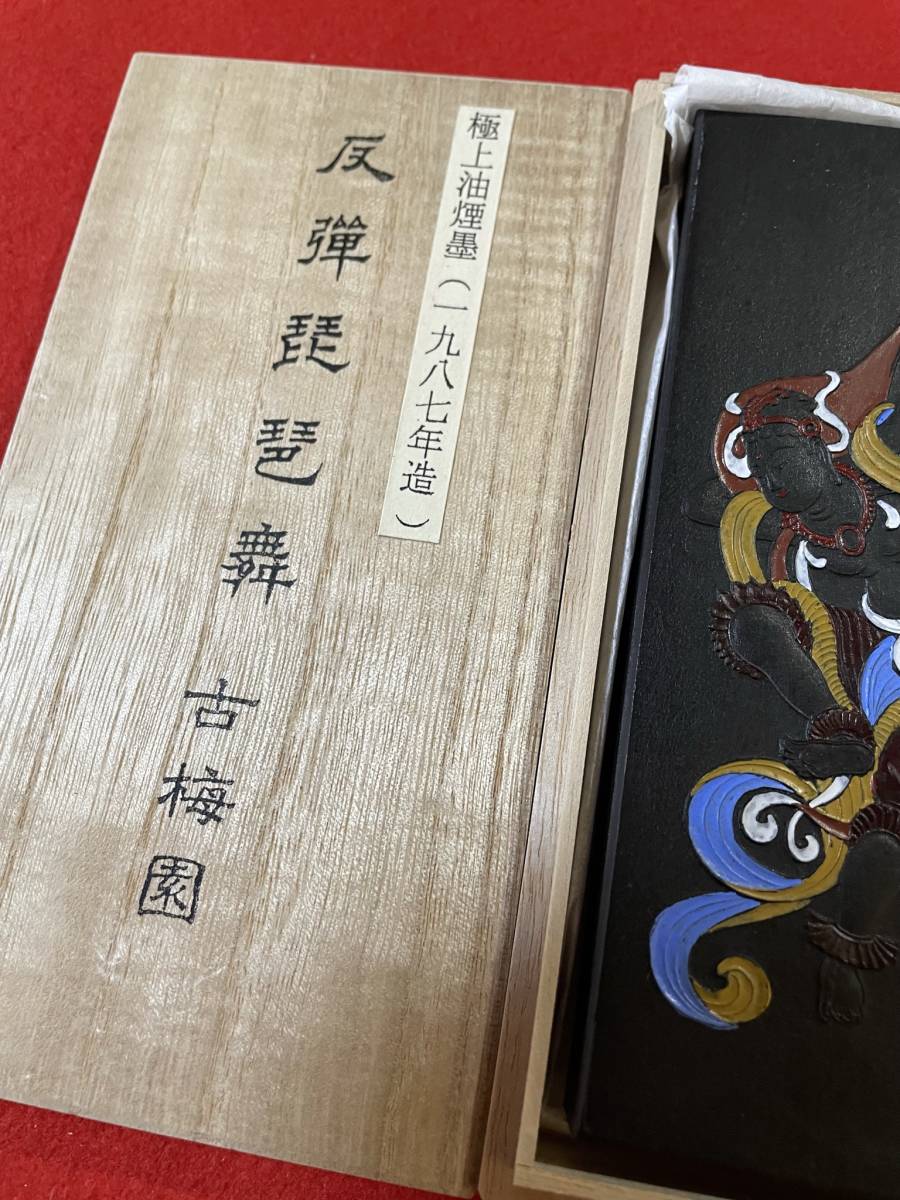 極上油煙墨(一九八七年造)
反彈琵琶舞 古梅園